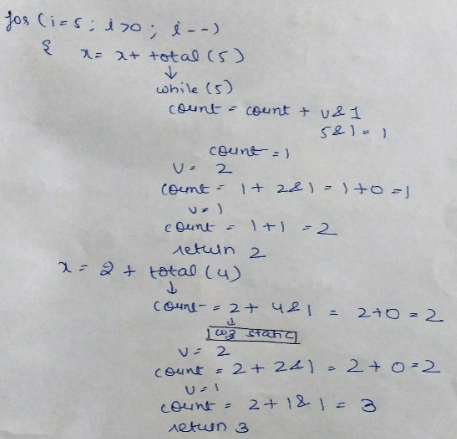 for (i=5; i>0; i--)
{ x = x + total (5)
↓
while (5)
count = count + v&1
5&1 = 1
count = 1
v = 2
count = 1 + 2&1 = 1+0 = 1
v=1
count = 1+1 = 2
return 2
x = 2 + total (4)
↓
count = 2 + 4&1 = 2+0 = 2
↓
coz static
v = 2
count = 2 + 2&1 = 2 + 0 = 2
v=1
count = 2+1&1 = 3
return 3